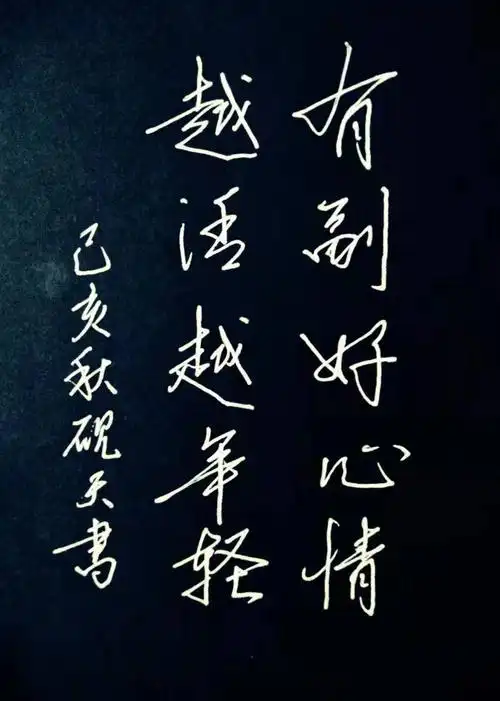 有副好心情
越活越年轻
己亥秋砚天书